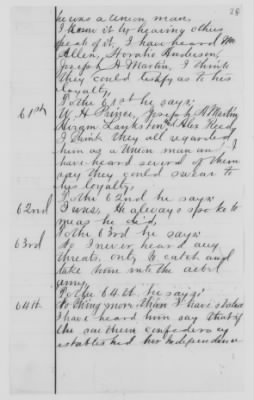 28
he was a Union man.
I know it by hearing others
speak of it. I have heard Wm
Allen, Horatio Anderson,
Joseph H Martin, I think
they could testify as to his
loyalty.
61st To the 61st he says:
W. H. Prince, Joseph H Martin
Hiram Lankston, Alex Reed,
I think they all regarded
him as a Union man and I
have heard several of them
say they could swear to
his loyalty.
To the 62nd he says:
62nd I was. He always spoke to
me as he did.
To the 63rd he says:
63rd No I never heard any
threats, only to catch and
take him into the rebel
army.
To the 64th he says:
64th Nothing more than I have stated
I have heard him say that if
the Southern confederacy
established her Independence